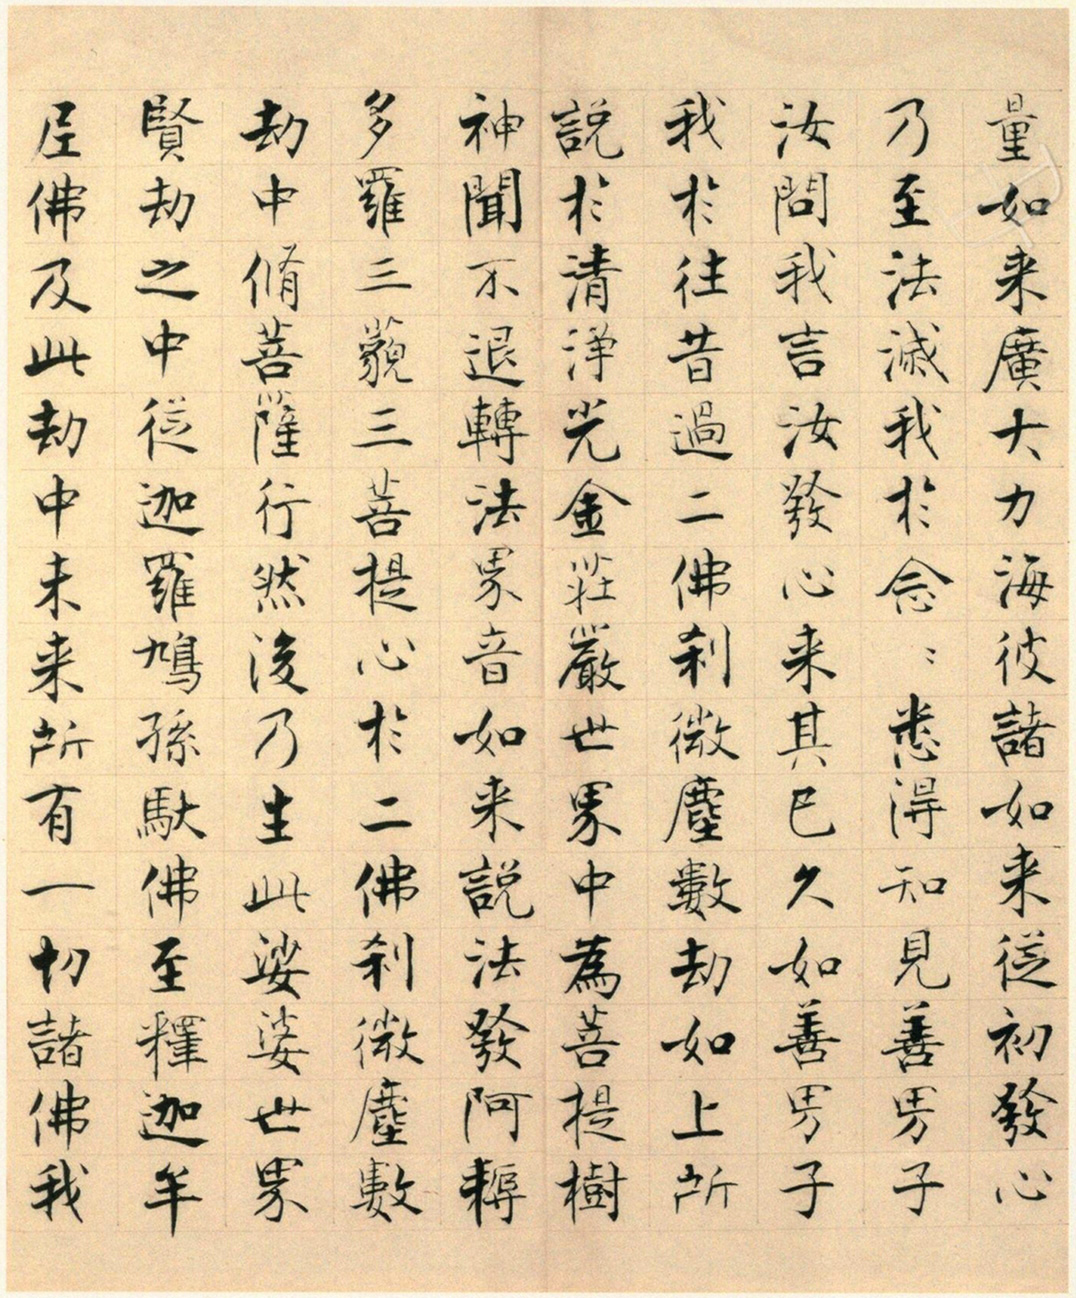 量如来廣大力海彼諸如来従初發心
乃至法滅我於念〻悉得知見善男子
汝問我言汝發心来其已久如善男子
我於往昔過二佛刹微塵數劫如上所
説於清淨光金莊嚴世界中為菩提樹
神聞不退轉法界音如来説法發阿耨
多羅三藐三菩提心於二佛刹微塵數
劫中脩菩薩行然後乃生此娑婆世界
賢劫之中従迦羅鳩孫馱佛至釋迦牟
尼佛及此劫中未来所有一切諸佛我